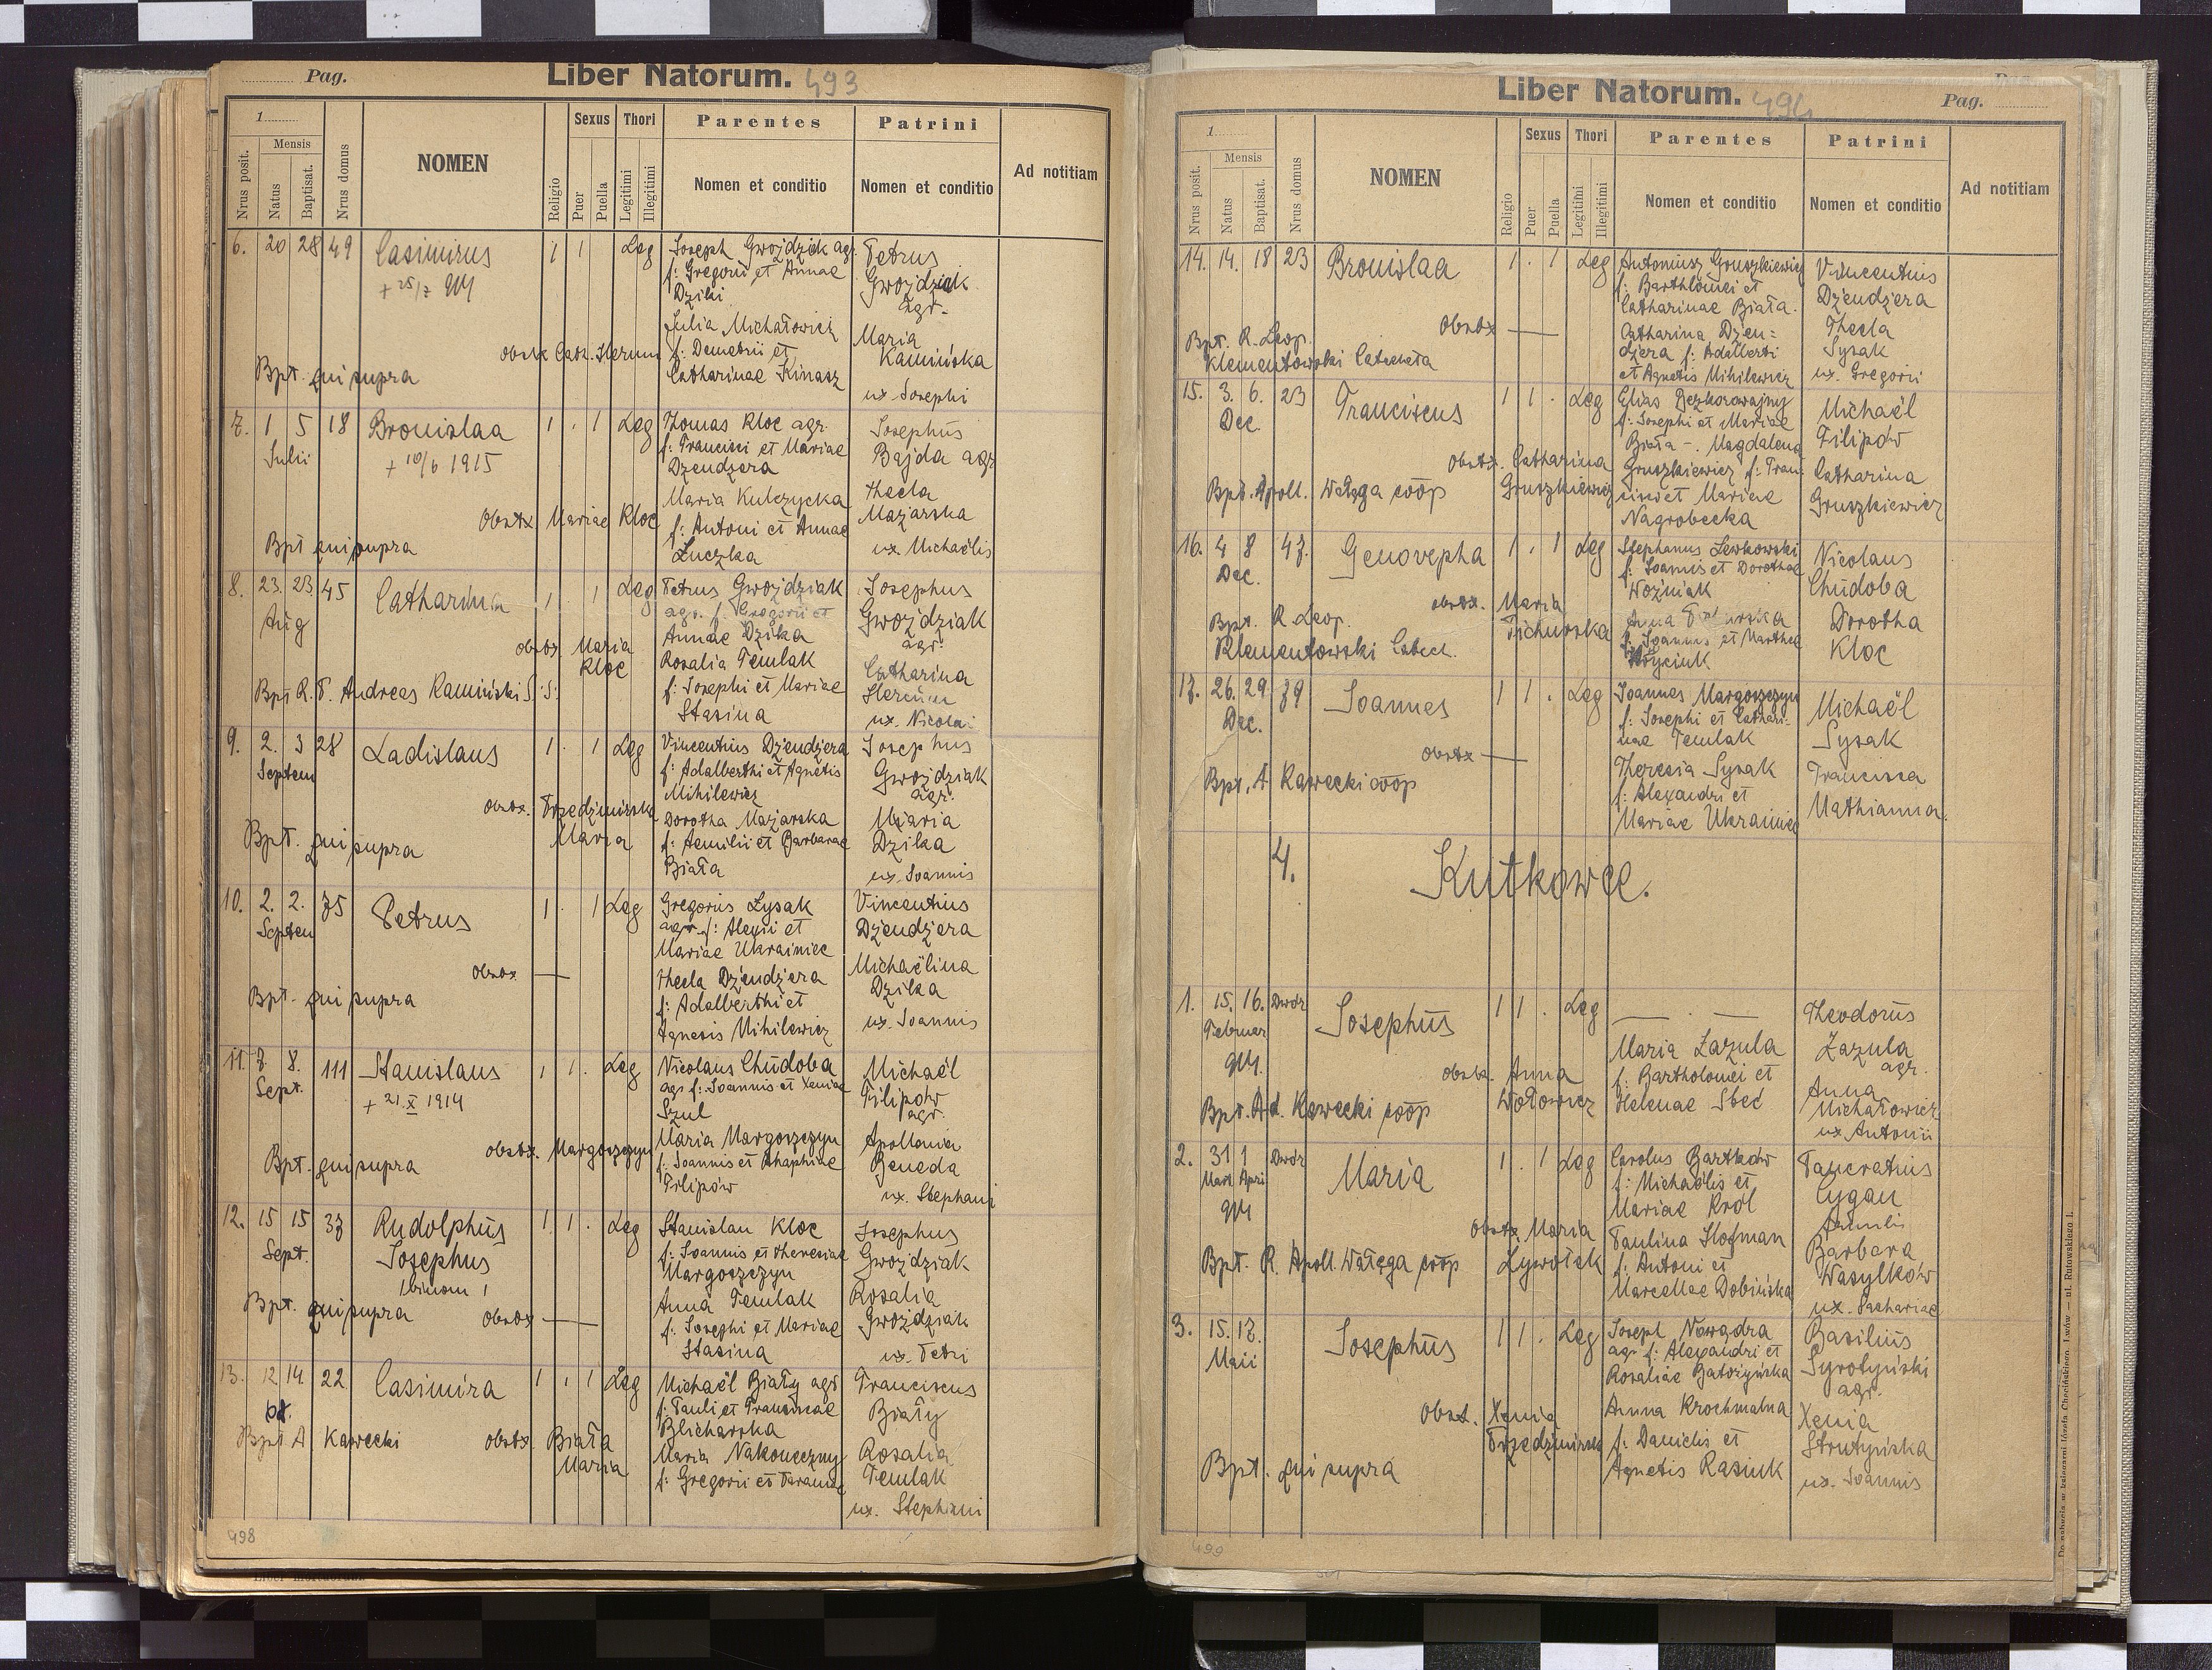 Pag.
Liber Natorum. 493
1
Nrus posit.
Mensis
Natus
Baptisat.
Nrus domus
NOMEN
Religio
Sexus
Puer
Puella
Thori
Legitimi
Illegitimi
Parentes
Nomen et conditio
Patrini
Nomen et conditio
Ad notitiam
6. 20 28 49 Casimirus 1 1 Leg
+ 25/7
Obstx Cath. Herum
Bpt. qui supra
Joseph Gwoździk agr.
f: Gregorii et Annae
Dziki
Julia Michałowicz
f: Demetrii et
Catharinae Kinasz
Petrus
Gwoździak
agr.
Maria
Kamińska
ux Josephi
7. 1 5 18 Bronislaa 1 . 1 Leg
Julii
+ 10/6 1915
Obstx Mariae Kloc
Bpt qui supra
Thomas Kloc agr.
f: Francisci et Mariae
Dzendzera
Maria Kulczycka
f: Antoni et Annae
Łuczka
Josephus
Bajda agr
Thecla
Mazarska
ux Michaëlis
8. 23. 23 45 Catharina 1 . 1 Leg
Aug
obstx Maria
Kloc
Bpt R. P. Andreas Kamiński S: S:
Petrus Gwoździak
agr. f: Gregorii et
Annae Dzika
Rosalia Temlak
f: Josephi et Mariae
Stasina
Josephus
Gwoździak
agr.
Catharina
Hercum
ux. Nicolai
9. 2. 3 28 Ladislaus 1 . 1 Leg
Septem
obstx. Trzedzimirska
Maria
Bpt. qui supra
Vincentius Dzendzera
f: Adalberthi et Agnetis
Mihilewicz
Dorotha Mazarska
f: Aemilii et Barbarae
Biała
Josephus
Gwoździak
agr.
Maria
Dzika
ux. Joannis
10. 2. 2. 75 Petrus 1 . 1 Leg
Septem
Obstx —
Bpt. qui supra
Gregorius Łysak
agr. f: Alexii et
Mariae Ukrainiec
Thecla Dzendzera
f: Adalberthi et
Agnesis Mihilewicz
Vincentius
Dzendzera
Michaëlina
Dzika
ux. Joannis
11. 7. 8. 111 Stanislaus 1 1 . Leg
Sept.
+ 21.X 1914
obstx. Margoszczyn
Bpt. qui supra
Nicolaus Chudoba
agr f: Joannis et Xeniae
Szul
Maria Margoszczyn
f: Joannis et Ahaphiae
Filipów
Michaël
Filipów
agr.
Apollonia
Beneda
ux. Stephani
12. 15 15 37 Rudolphus 1 1 . Leg
Sept.
Josephus
(binom)
Bpt. qui supra
obstx —
Stanislau Kloc
f: Joannis et Theresiae
Margoszczyn
Anna Temlak
f: Josephi et Mariae
Stasina
Josephus
Gwoździak
Rosalia
Gwoździak
ux. Petri
13. 12 14 22 Casimira 1 . 1 Leg
Oct.
Bpt A Kawecki
obstx Biała
Maria
Michaël Biały agr
f: Pauli et Franciscae
Blicharska
Maria Nakoneczny
f: Gregorii et Parania
Franciscus
Biały
Rosalia
Temlak
ux. Stephani
498
Liber Natorum. 494
Pag.
1
Nrus posit.
Mensis
Natus
Baptisat.
Nrus domus
NOMEN
Religio
Sexus
Puer
Puella
Thori
Legitimi
Illegitimi
Parentes
Nomen et conditio
Patrini
Nomen et conditio
Ad notitiam
14. 14. 18 23 Bronislaa 1 . 1 Leg
Obstx —
Bpt. R. Leop.
Klementowski Catecheta
Antoniusz Gruszkiewicz
f: Barthlomei et
Catharinae Biała.
Catharina Dzen-
dzera f: Adalberti
et Agnetis Mihilewicz
Vincentius
Dzendzera
Thecla
Sysak
ux. Gregorii
15. 3. 6. 23 Franciscus 1 1 . Leg
Dec.
Obstx. Catharina
Gruszkiewicz
Bpt. Apoll. Wałęga coop
Elias Bezkorowajny
f: Josephi et Mariae
Biała -. Magdalena
Gruszkiewicz f: Fran-
cisci et Mariae
Nagrobecka
Michaël
Filipów
Catharina
Gruszkiewicz
16. 4 8 47. Genovepha 1 . 1 Leg
Dec.
obstx. Maria
Tichurska
Bpt. R. Leop.
Klementowski Catech.
Stephanus Lewkowski
f: Joannis et Dorothae
Woźniak
Anna
f: Joannis et Marthae
Woyciuk
Nicolaus
Chudoba
Dorotha
Kloc
17. 26. 29 79 Joannes 1 1 . Leg
Dec.
obstx —
Bpt. A Kawecki coop
Joannes Margoszczyn
f: Josephi et Cathari-
nae Temlak
Theresia Sysak
f: Alexandri et
Mariae Ukrainiec
Michaël
Sysak
Francisca
Mathianna.
4. Kutkowce.
1. 15. 16. Dwór Josephus 1 1 . Leg
Februar
obstx. Anna
Wołowicz
Bpt. Ad. Kawecki coop
— . —
Maria Zazula
f: Bartholomei et
Helenae Sbeć
Theodorus
Zazula
agr.
Anna
Michałowicz
ux Antonii
2. 31 1 Dwór Maria 1 . 1 Leg
Mart Apri
Obstx Maria
Żywolek
Bpt. R. Apoll. Wałęga coop
Carolus Bartków
f: Michaëlis et
Mariae Król
Paulina Hofman
f: Antoni et
Marcellae Dobińska
Pancratius
Cygan
Barbara
Wasylków
ux. Zachariae
3. 15. 17. Josephus 1 1 . Leg
Maii
Obst. Xenia
Trzedzimirska
Bpt. qui supra
Joseph Nawadra
agr f: Alexandri et
Rosaliae Batożyńska
Anna Krochmalna
f: Danielis et
Agnetis Rasiuk
Basilius
Syrotyński
agr.
Xenia
Strutyńska
ux. Joannis
499